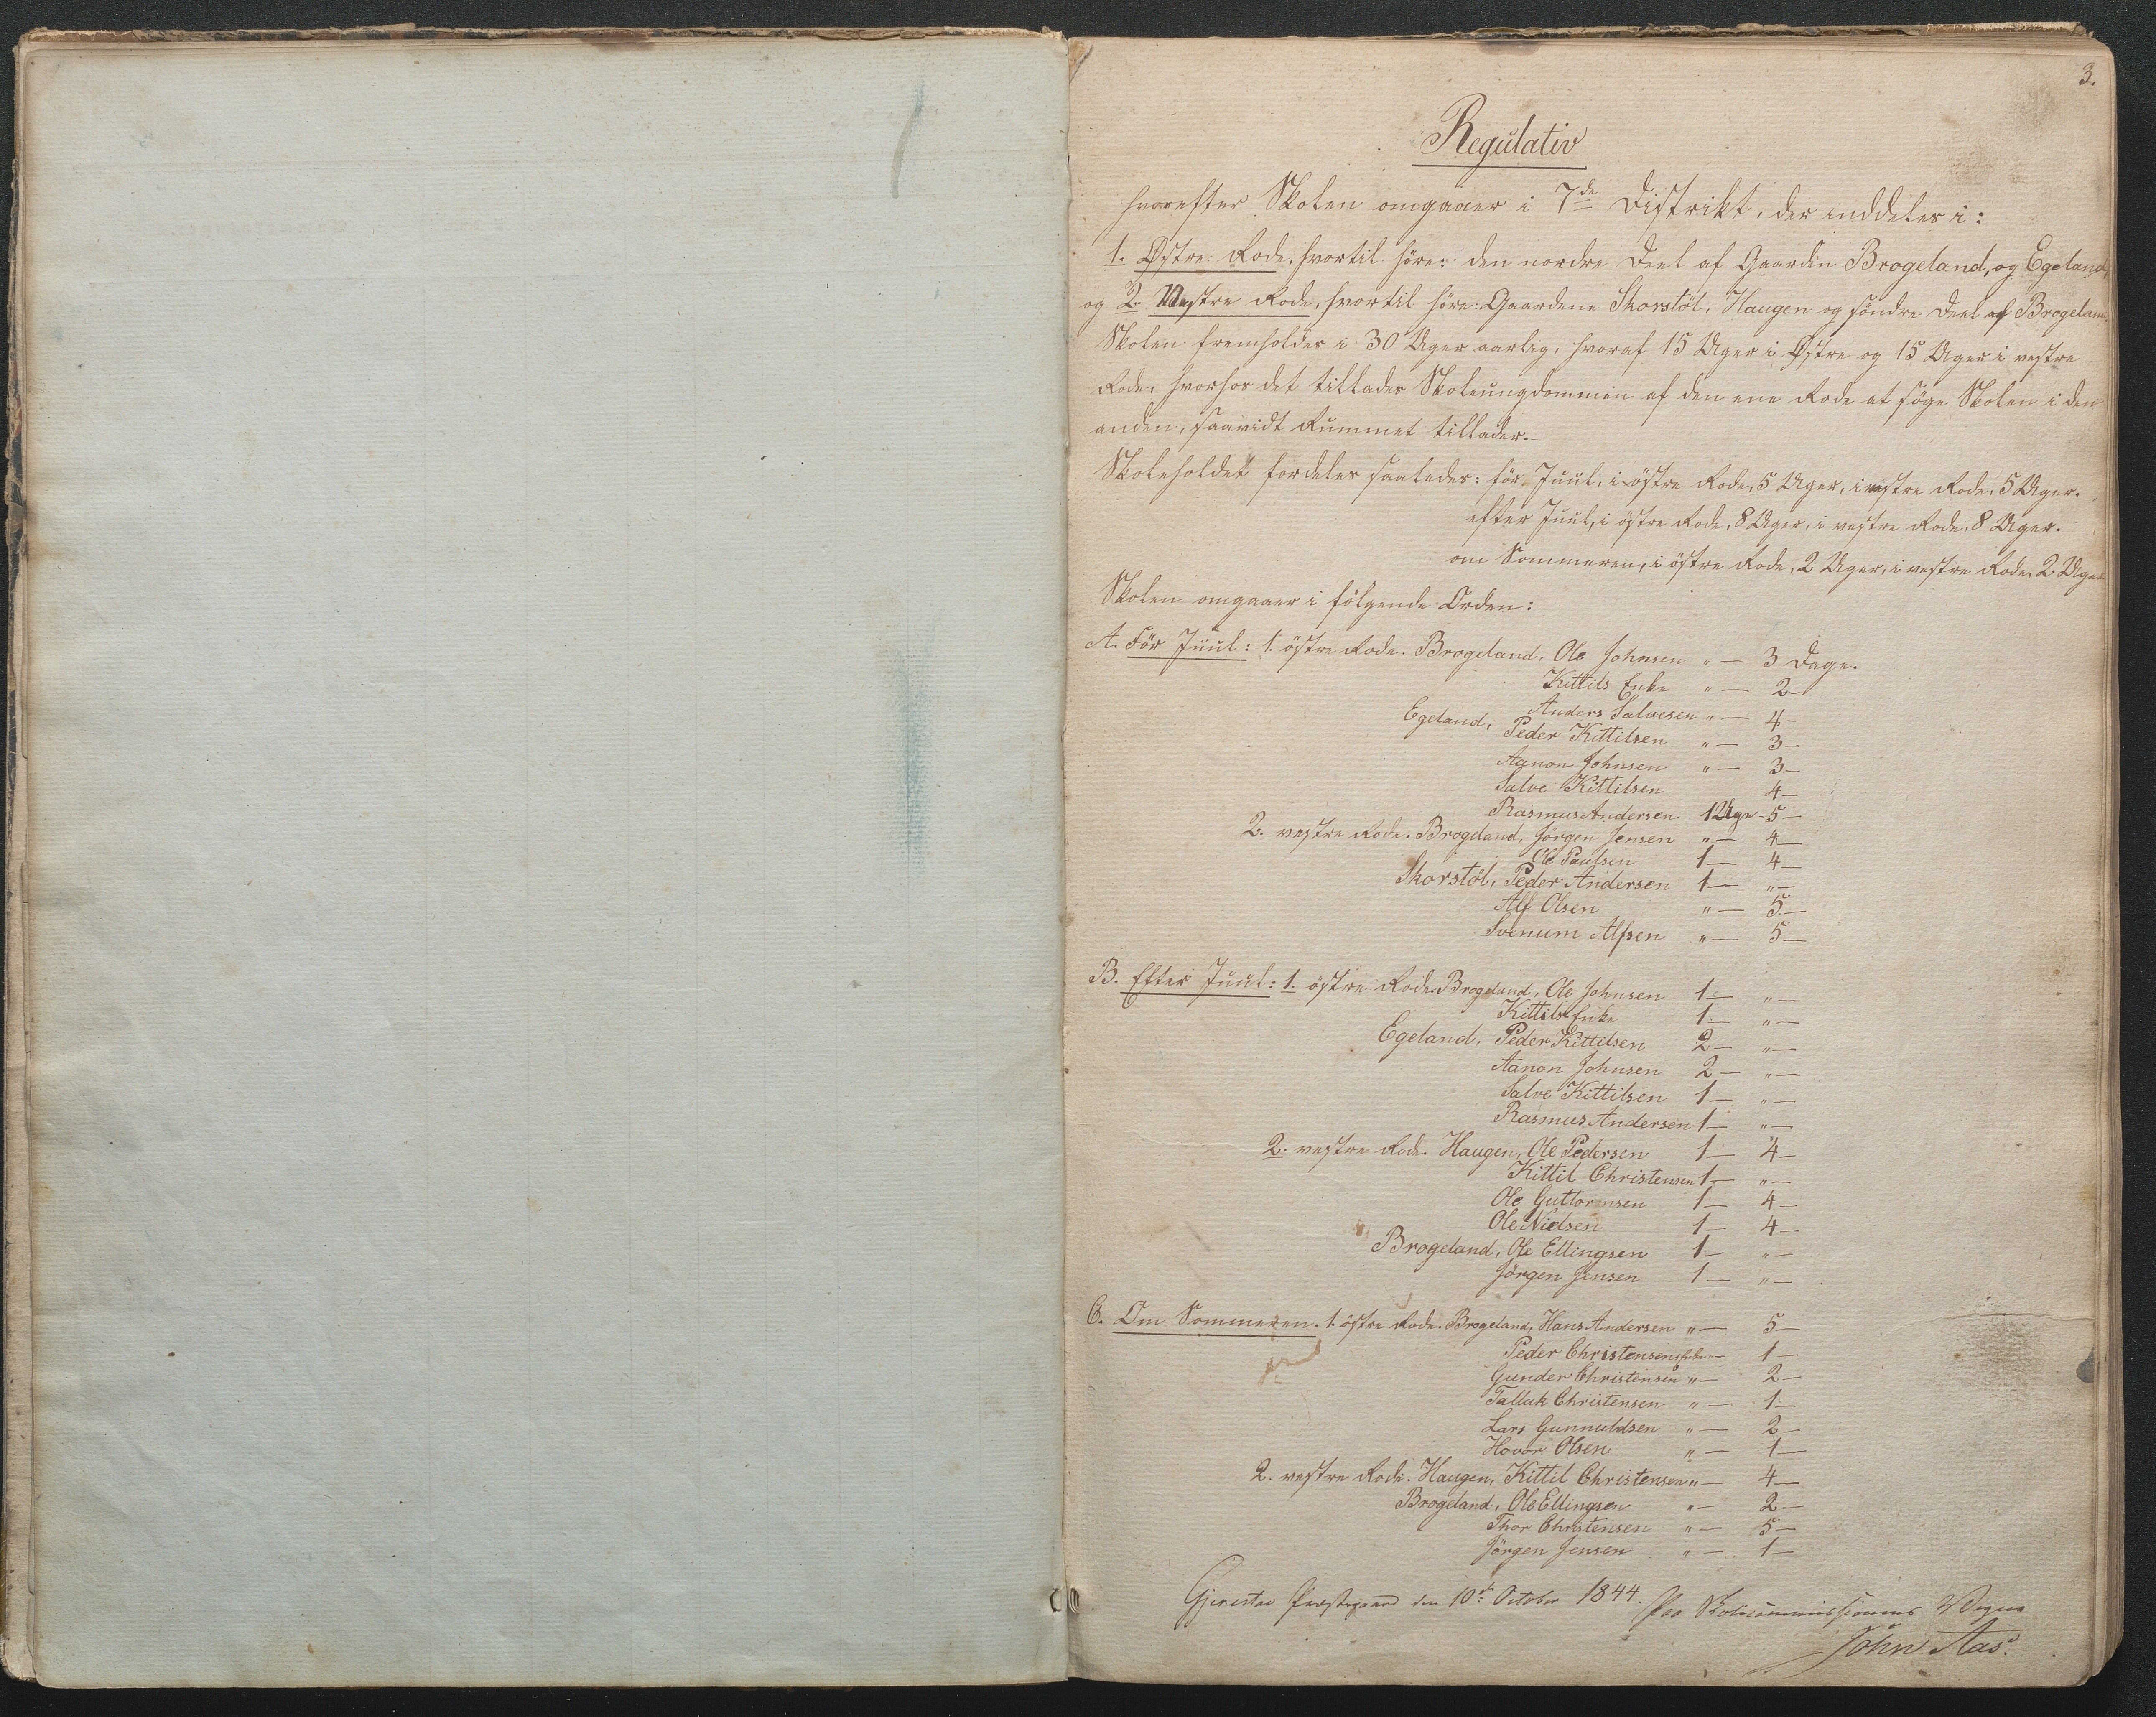 3.
Regulativ
hvorefter Skolen omgaaer i 7de Distrikt, der inddeles i:
1. Østre Rode, hvortil höre: den nordre Deel af Gaarden Brogeland, og Egeland,
og 2. Vestre Rode, hvortil höre: Gaardene Skorstöl, Haugen og söndre Deel af Brogeland.
Skolen fremholdes i 30 Uger aarlig, hvoraf 15 Uger i Østre og 15 Uger i vestre
Rode, hvorhos det tillades Skoleungdommen af den ene Rode at söge Skolen i den
anden, saavidt Rummet tillader.
Skoleholdet fordeles saaledes: för Juul, i östre Rode, 5 Uger, i vestre Rode, 5 Uger.
efter Juul, i östre Rode, 8 Uger, i vestre Rode, 8 Uger.
om Sommeren, i östre Rode, 2 Uger, i vestre Rode, 2 Uger
Skolen omgaaer i fölgende Orden:
A. För Juul: 1. östre Rode. Brogeland, Ole Johnsen " — 3 Dage.
Kittils Enke " — 2 —
Anders Salvesen " — 4 —
Egeland, Peder Kittilsen " — 3 —
Aanon Johnsen " — 3 —
Salve Kittilsen 4 —
Rasmus Andersen 1 Uge - 5 —
2. vestre Rode. Brogeland, Jörgen Jensen " — 4 —
Ole Paulsen 1 — 4 —
Skorstöl, Peder Andersen 1 — " —
Alf Olsen " — 5 —
Svenum Alfsen " — 5 —
B. Efter Juul: 1. östre Rode. Brogeland, Ole Johnsen 1 — " —
Kittils Enke 1 — " —
Egeland, Peder Kittilsen 2 — " —
Aanon Johnsen 2 — " —
Salve Kittilsen 1 — " —
Rasmus Andersen 1 — " —
2. vestre Rode. Haugen, Ole Pedersen 1 — 4 —
Kittil Christensen 1 — " —
Ole Guttormsen 1 — 4 —
Ole Nielsen 1 — 4 —
Brogeland, Ole Ellingsen 1 — " —
Jörgen Jensen 1 — " —
C. Om Sommeren. 1. östre Rode. Brogeland, Hans Andersen " — 5 —
Peder Christensens Enke — 1 —
Gunder Christensen " — 2 —
Talluk Christensen " — 1 —
Lars Gunnuldsen " — 2 —
Hovor Olsen " — 1 —
2. vestre Rode. Haugen, Kittil Christensen " — 4 —
Brogeland, Ole Ellingsen " — 2 —
Thor Christensen " — 5 —
Jörgen Jensen " — 1 —
Gjerestad Præstegaard den 10de October 1844.
Paa Skolecommissionens Vegne
John Aas.